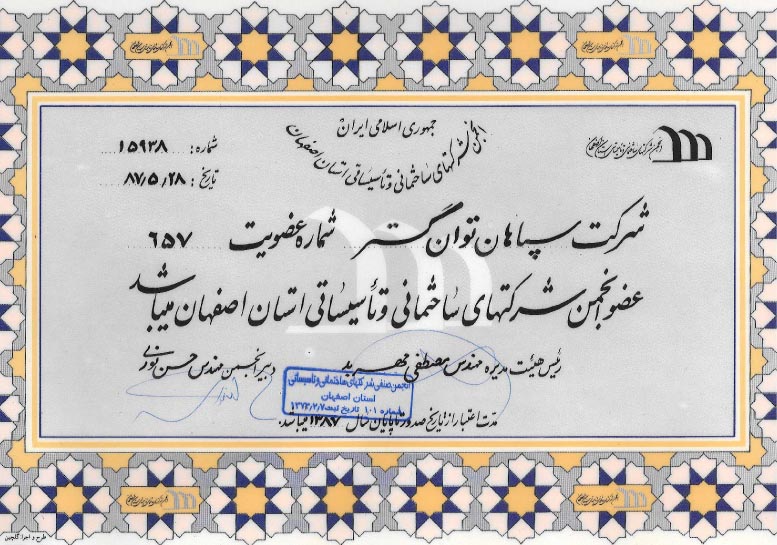 جمهوری اسلامی ایران
انجمن شرکتهای ساختمانی و تأسیساتی استان اصفهان
شماره: ۱۵۹۳۸
تاریخ: ۸۷/۵/۲۸
شرکت سپاهان توان گستر شماره عضویت ۶۵۷
عضو انجمن شرکتهای ساختمانی و تأسیساتی استان اصفهان میباشد
رئیس هیئت مدیره مهندس مصطفی مهربد
دبیر انجمن مهندس حسن نوری
انجمن صنفی شرکتهای ساختمانی و تأسیساتی
استان اصفهان
شماره ۱۰۱ تاریخ ثبت ۱۳۷۳/۲/۷
مدت اعتبار از تاریخ صدور تا پایان سال ۱۳۸۷ میباشد.
طرح و اجرا گلچین